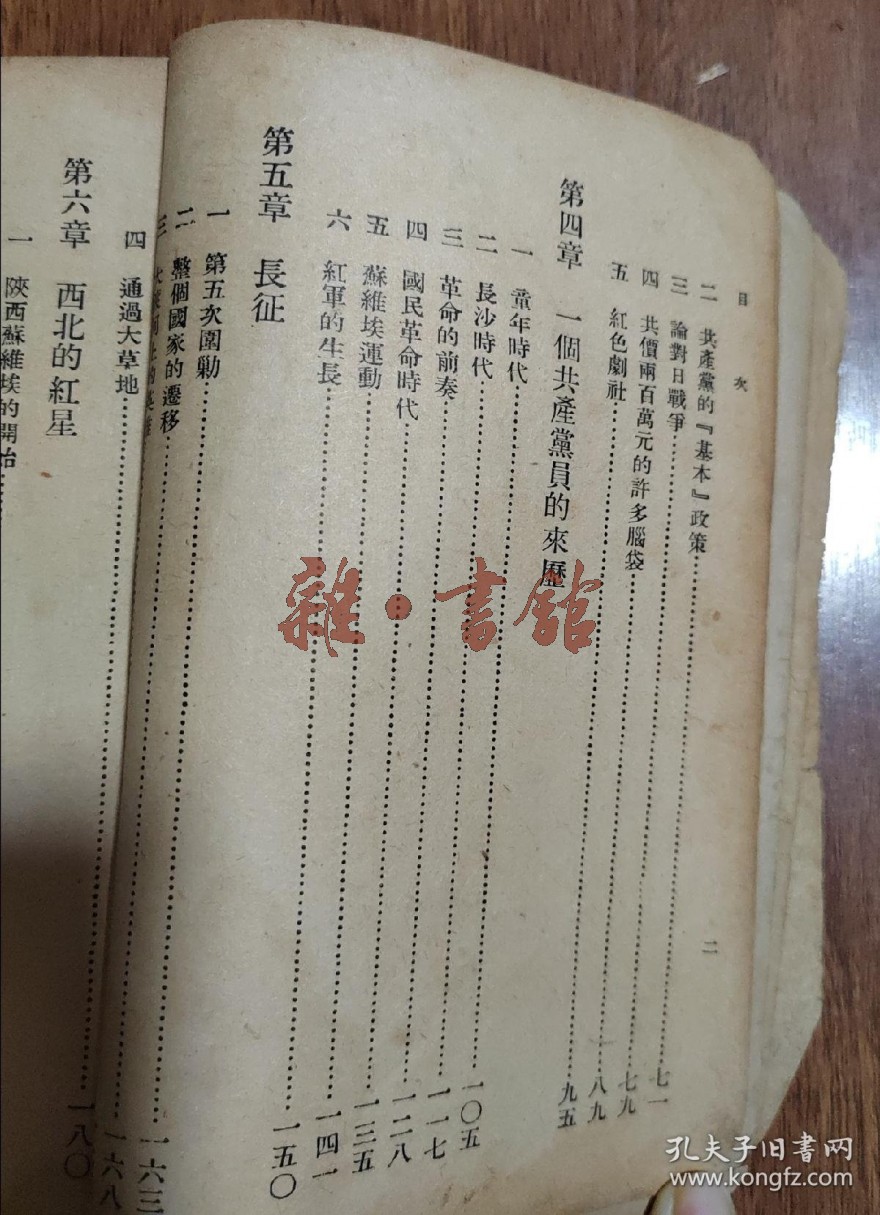 目次
二
二 共產黨的『基本』政策……七一
三 論對日戰爭……七九
四 共價兩百萬元的許多腦袋……八九
五 紅色劇社……九五
第四章 一個共產黨員的來歷
一 童年時代……一〇五
二 長沙時代……一一七
三 革命的前奏……一二八
四 國民革命時代……一三五
五 蘇維埃運動……一四一
六 紅軍的生長……一五〇
第五章 長征
一 第五次圍勦……一六三
二 整個國家的遷移……一六八
三
四 通過大草地……一八〇
第六章 西北的紅星
一 陝西蘇維埃的開始……
雜·書館
孔夫子旧书网
www.kongfz.com